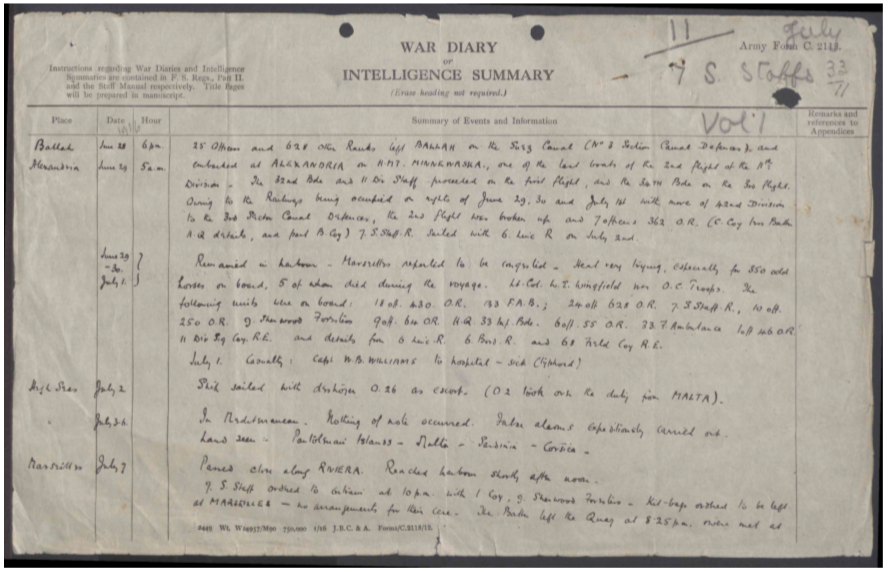 11
July
WAR DIARY
Army Form C. 2118.
OR
INTELLIGENCE SUMMARY
7 S. Staffs 33/11
(Erase heading not required.)
Instructions regarding War Diaries and Intelligence
Summaries are contained in F. S. Regs., Part II.
and the Staff Manual respectively. Title Pages
will be prepared in manuscript.
Vol 1
Place Date Hour Summary of Events and Information Remarks and references to Appendices
1916
Ballah June 28 6pm. 25 Officers and 628 other Ranks left BALLAH on the Suez Canal (No 3 Section Canal Defences), and
Alexandria June 29 5 a.m. embarked at ALEXANDRIA on H.M.T. MINNEWASKA, one of the last boats of the 2nd flight of the 11th
Division. The 32nd Bde and 11 Div Staff proceeded on the first flight, and the 34TH Bde on the 3rd flight.
Owing to the Railways being occupied on nights of June 29, 30 and July 1st with move of 42nd Division
to the 3rd Sector Canal Defences, the 2nd flight was broken up and 7 officers 362 O.R. (C. Coy less Battn
H.Q details, and part B. Coy) 7. S. Staff. R. sailed with 6. Linc R on July 2nd.
June 29 - 30. July 1. Remained in harbour - Marseilles reported to be congested. Heat very trying, especially for 850 odd
horses on board, 5 of whom died during the voyage. Lt-Col. W. E. Wingfield was O.C Troops. The
following units were on board: 18 off. 430 O.R. 133 F.A.B.; 24 off 628 O.R. 7. S. Staff. R., 10 off.
250 O.R. 9. Sherwood Foresters 9 off. 64 O.R. H.Q. 33 Inf. Bde. 6 off. 55 O.R. 33. F. Ambulance 1 off 46 O.R.
11 Div Sig Coy. R.E. and details from 6 Linc. R. 6 Bord. R. and 68 Field Coy R.E.
July 1. Casualty: Capt W. B. WILLIAMS to hospital - sick
High Seas July 2 Ship sailed with destroyer O.26 as escort. (O 2 took over the duty from MALTA).
" July 3-6. In Mediterranean. Nothing of note occurred. False alarms expeditiously carried out.
Land seen - Islands - Malta - Sardinia - Corsica -
Marseilles July 7 Passed close along RIVIERA. Reached harbour shortly after noon.
7. S. Staff ordered to entrain at 10 p.m. with 1 Coy, 9. Sherwood Foresters. Kit-bags ordered to be left
at MARSEILLES - no arrangements for their care. The Battn left the Quay at 8.25 p.m. orders met at
2449 Wt. W14957/M90 750,000 1/16 J.B.C. & A. Forms/C.2118/12.